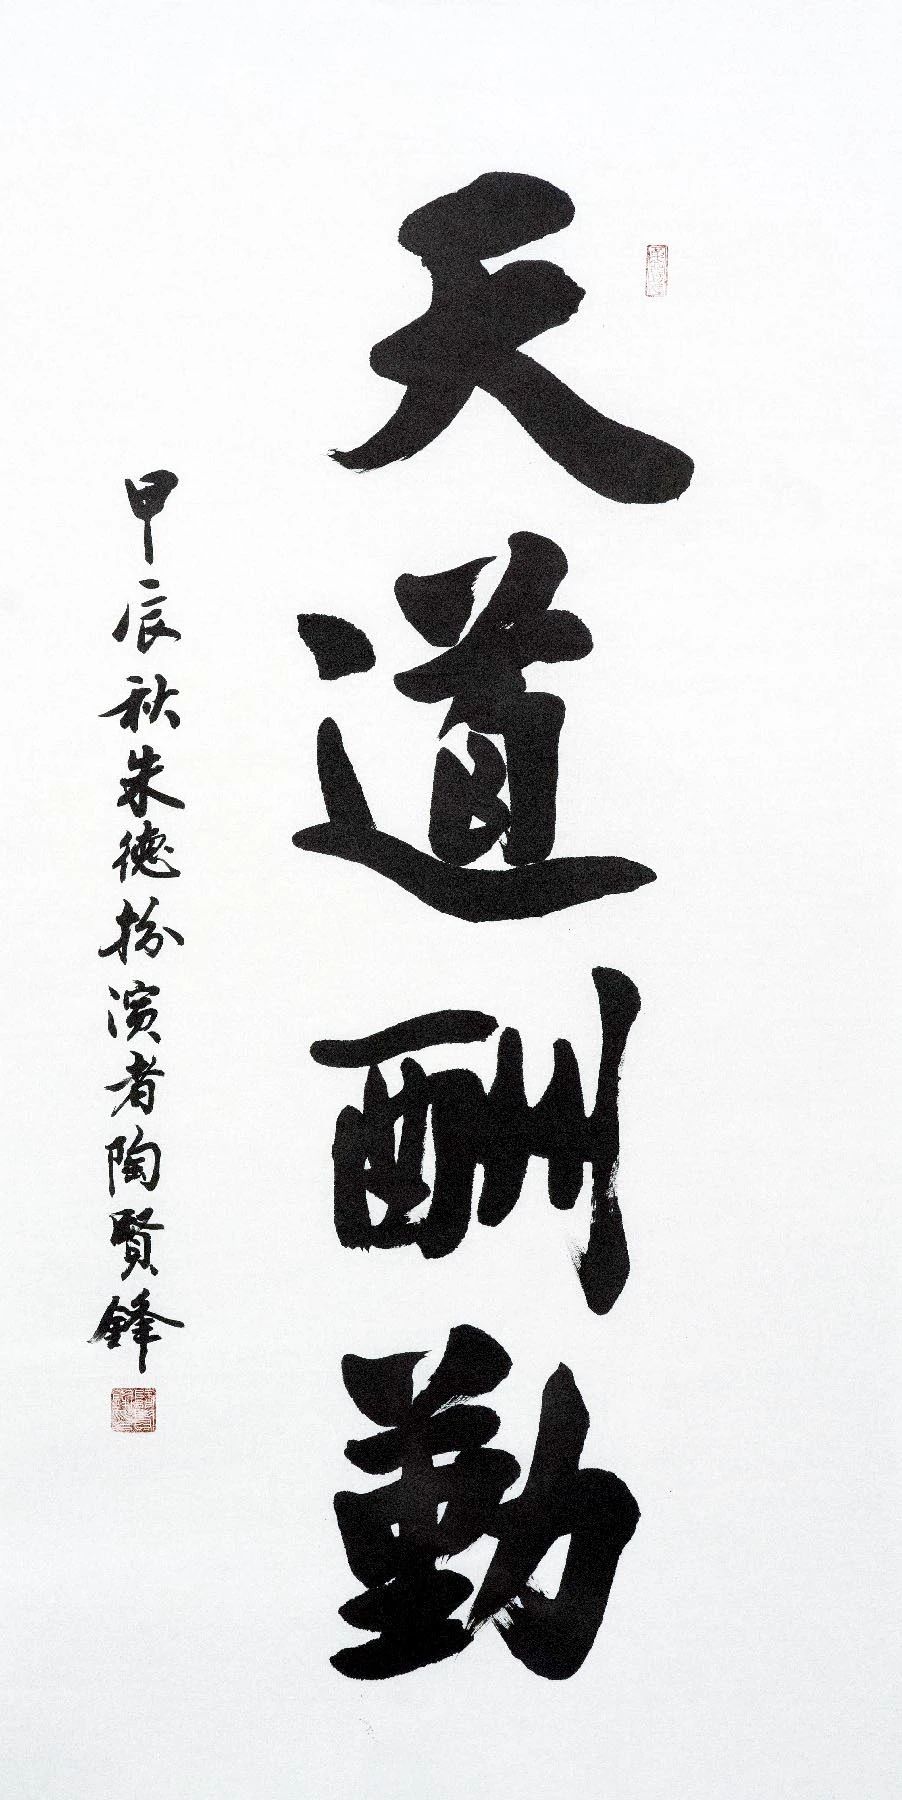 天道酬勤
甲辰秋朱德扮演者陶賢鋒